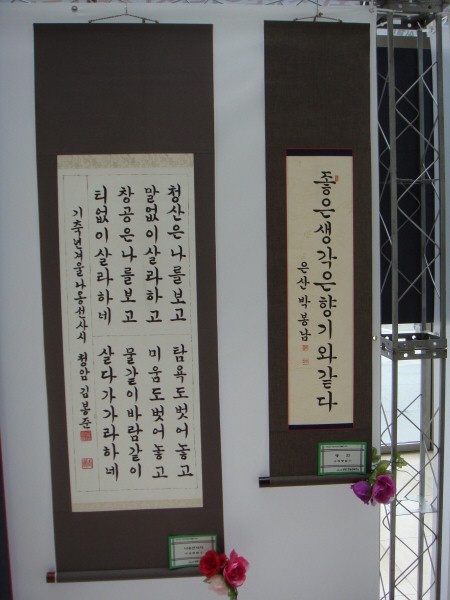 청산은나를보고
말없이살라하고
창공은나를보고
티없이살라하네
탐욕도벗어놓고
미움도벗어놓고
물같이바람같이
살다가가라하네
기축년겨울나옹선사시 청암 김봉준
좋은생각은향기와같다
은산 박봉남